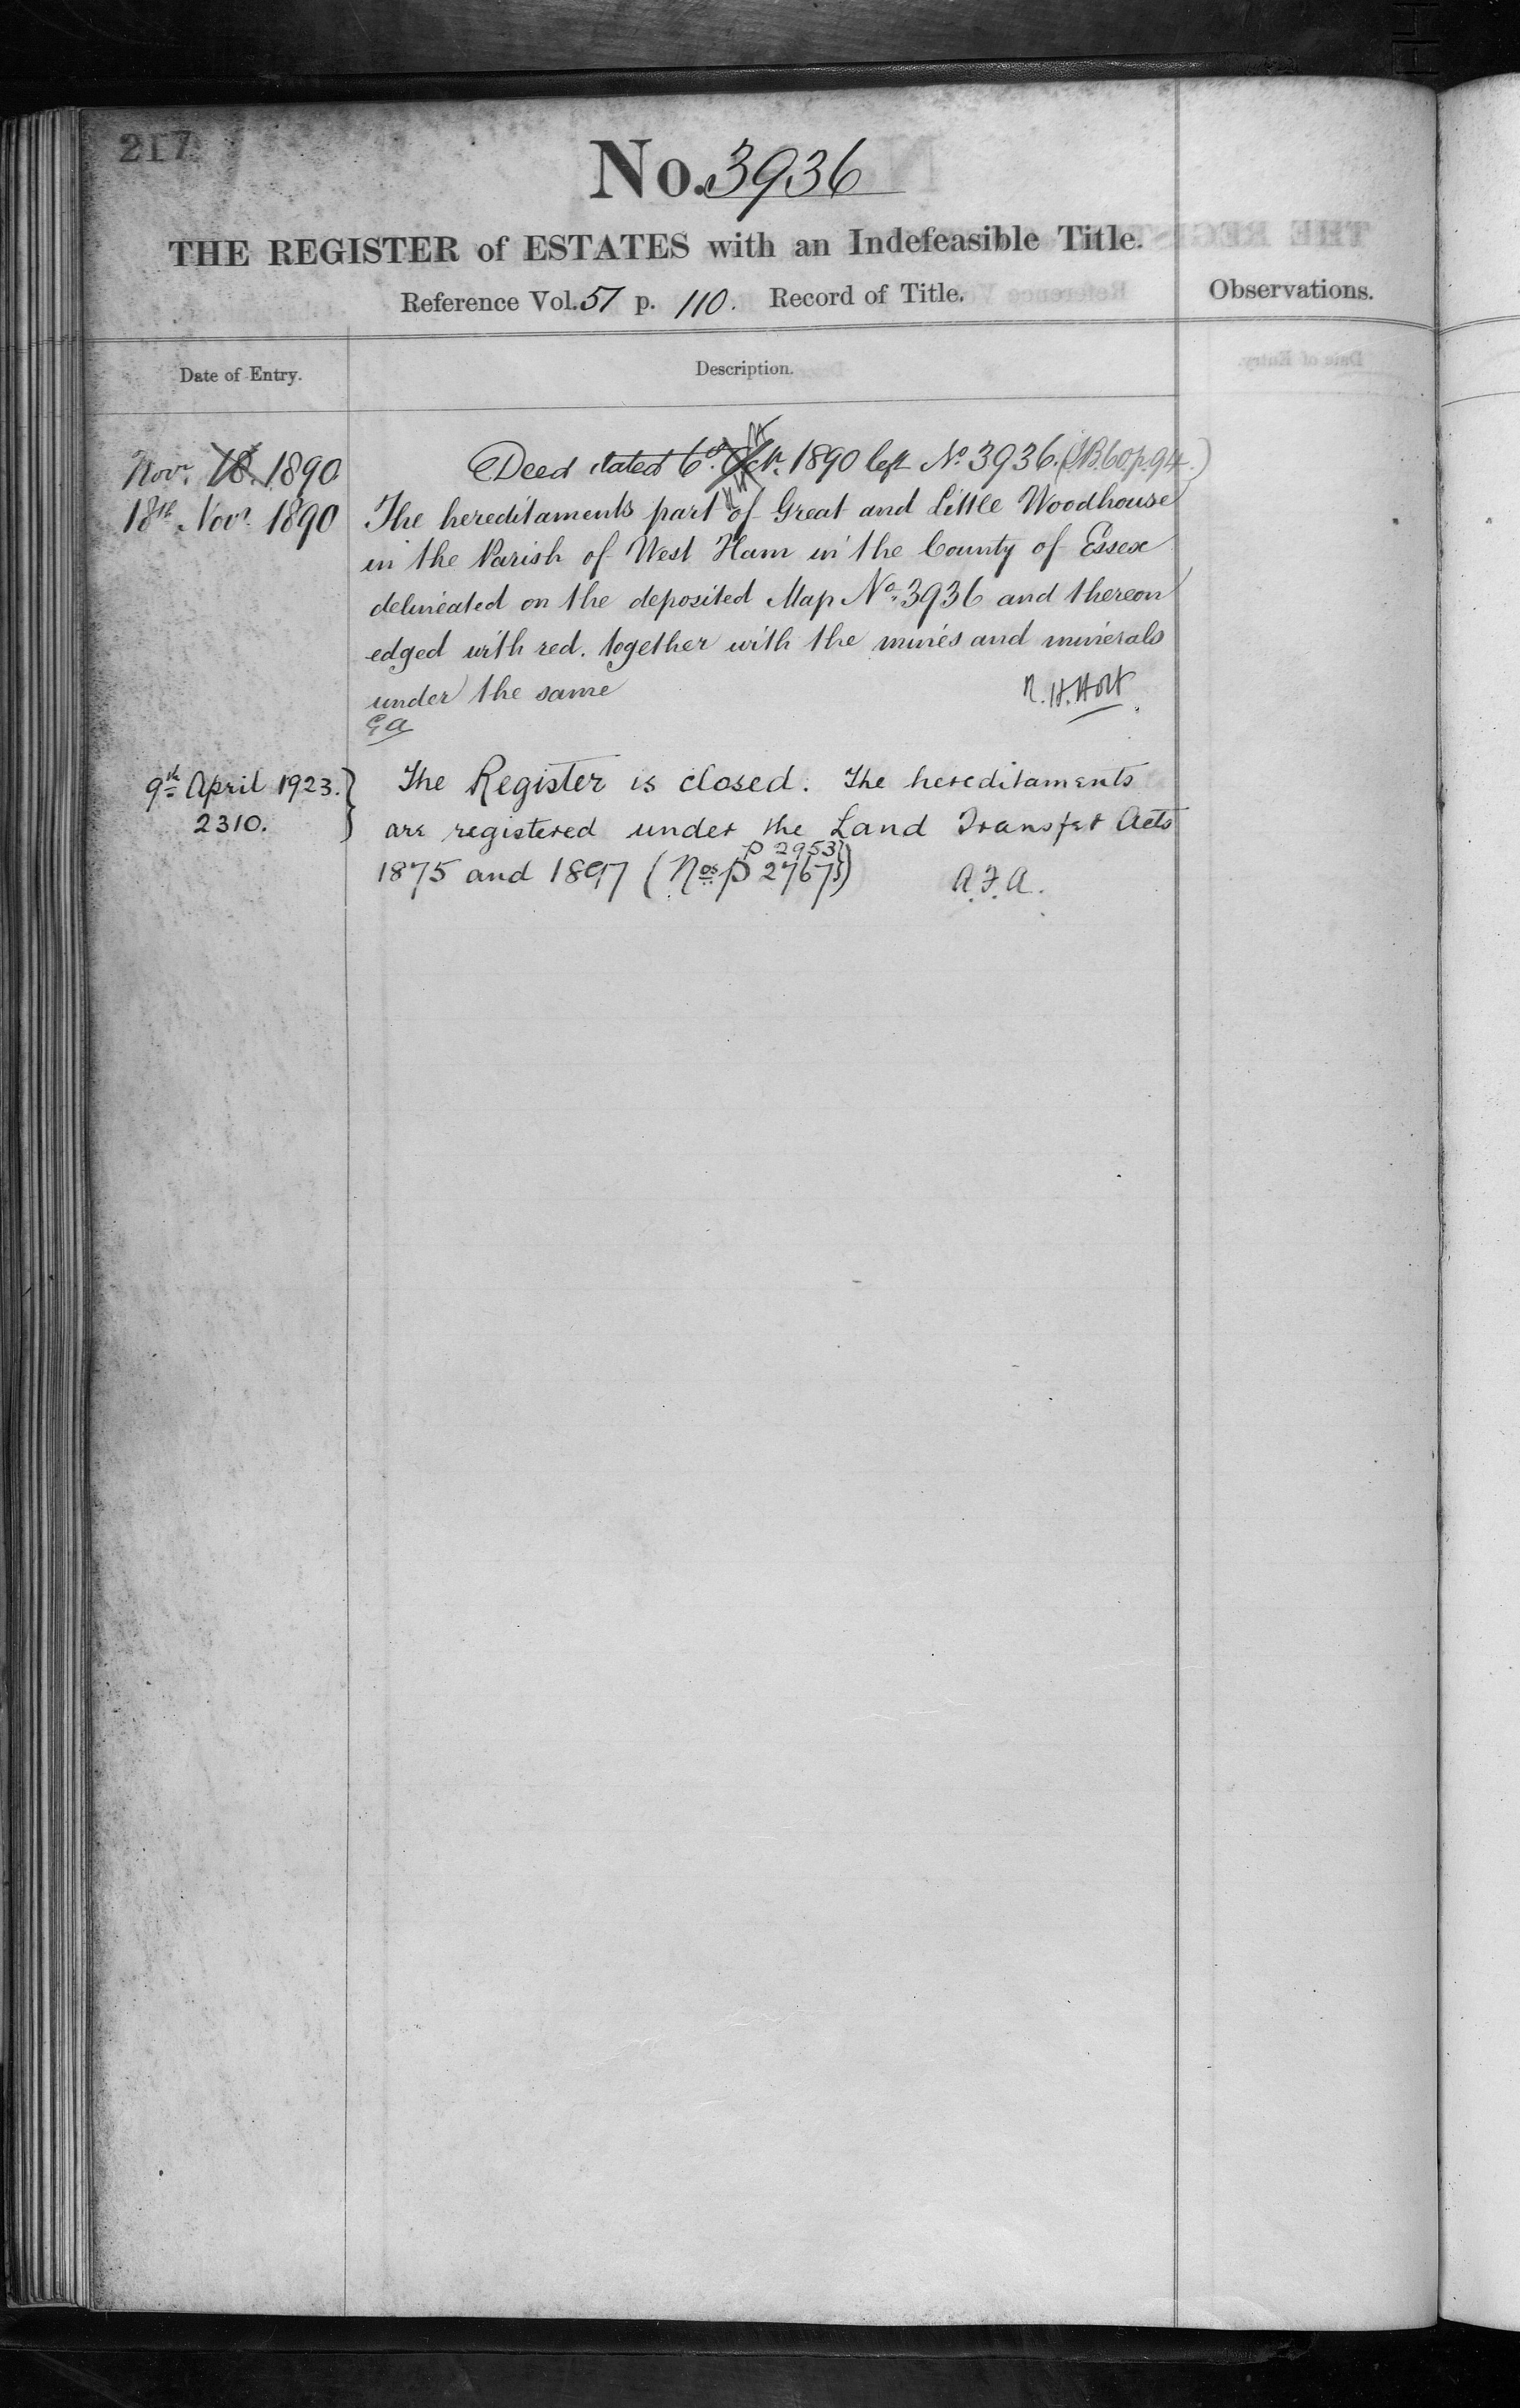 217
No. 3936
THE REGISTER of ESTATES with an Indefeasible Title.
Reference Vol. 51 p. 110. Record of Title.
Observations.
Date of Entry.
Description.
Novr. 18. 1890
Deed dated 6th Octr. 1890 left No. 3936. (I.B. 60 p. 94.)
18th Novr. 1890
The hereditaments part of Great and Little Woodhouse
in the Parish of West Ham in the County of Essex
delineated on the deposited Map No. 3936 and thereon
edged with red. together with the mines and minerals
under the same
R. H. Holt
9th April 1923.
2310.
The Register is closed. The hereditaments
are registered under the Land Transfer Acts
1875 and 1897 (Nos P 2767)
P 2953
A.F.A.